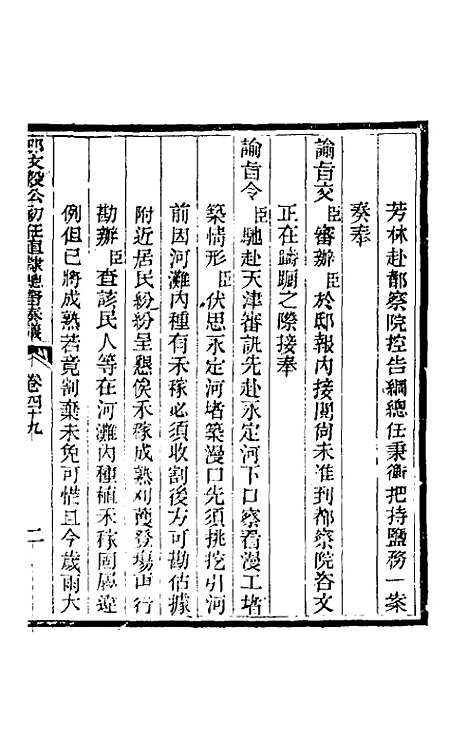 芳林赴都察院控告綱總任秉衡把持鹽務一案
奏奉
諭旨交臣審辦臣於邸報內接閱尚未准到都察院咨文
正在躊躇之際接奉
諭旨令臣馳赴天津審訊先赴永定河下口察看漫工堵
築情形臣伏思永定河堵築漫口先須挑挖引河
前因河灘內種有禾稼必須收割後方可勘估據
附近居民紛紛呈懇俟禾稼成熟刈穫登場再行
勘辦臣查該民人等在河灘內種植禾稼固屬違
例但已將成熟若竟割棄未免可惜且今歲雨大
那文毅公初任直隸總督奏議 卷四十九 二